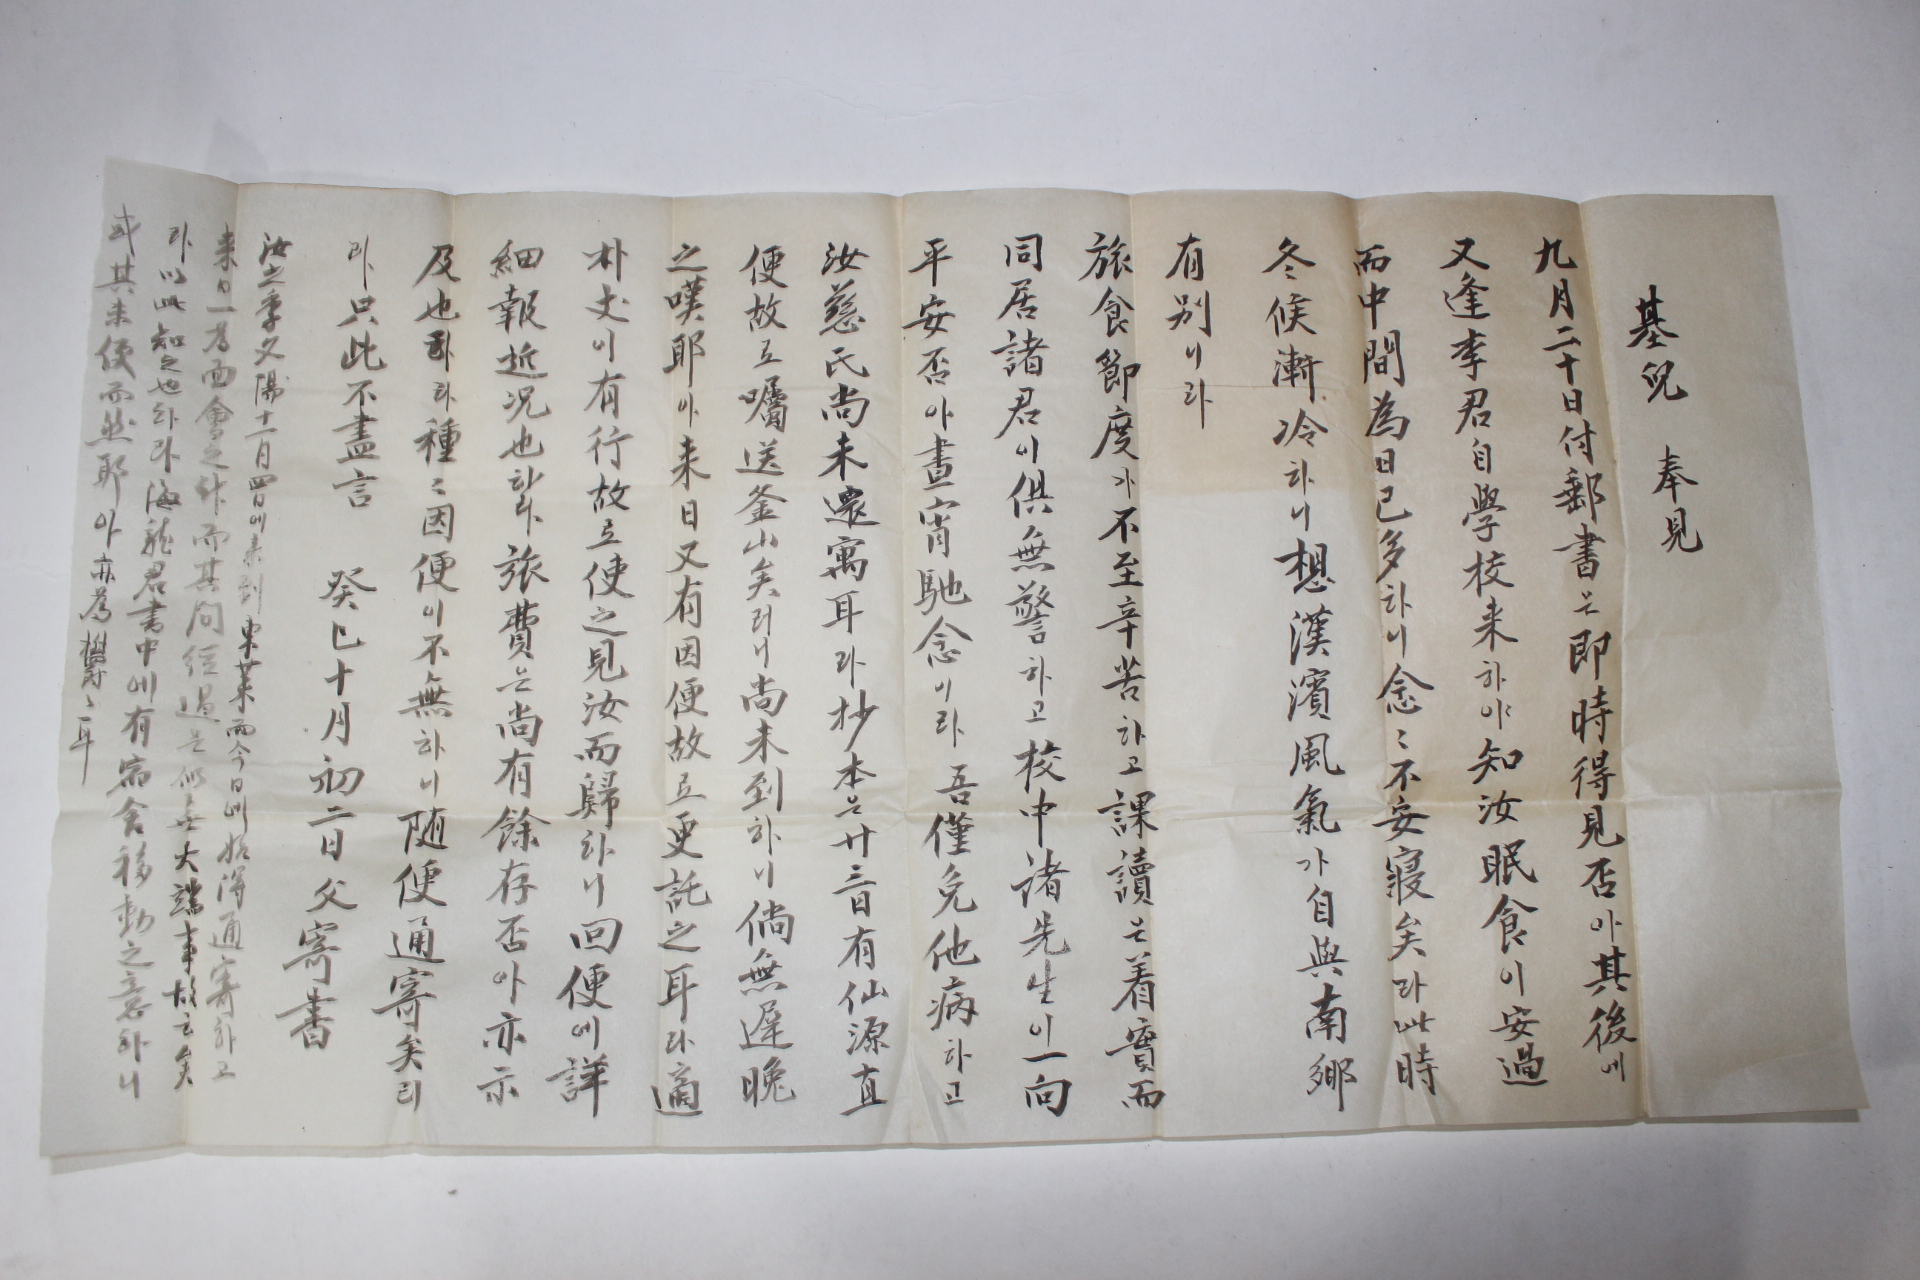 基兒 奉見
九月二十日付郵書는即時得見否아其後에
又逢李君自學校來하야知汝眠食이安過
而中間為日已多하니念〻不安寢矣라此時
冬候漸冷하니想漢濱風氣가自與南鄉
有別이라
旅食節度가不至辛苦하고課讀는着實而
同居諸君이俱無警하고校中諸先生이一向
平安否아晝宵馳念이라 吾僅免他病하고
汝慈氏尚未還寓耳라抄本는廿三日有仙源直
便故로囑送釜山矣러니尚未到하니倘無遲晚
之嘆耶아來日又有因便故로更託之耳라適
朴丈이有行故로使之見汝而歸라니回便에詳
細報近况也하라旅費는尚有餘存否아亦示
及也하라種〻因便이不無하니随便通寄矣리
라只此不盡言 癸巳十月初二日父寄書
汝之季父陽十一月四日에來到東萊而今日에始得通寄하고
來日一為面會之計而其間經過는似無大端事故로矣
라以此知之也하라海龍君書中에有宿舍移動之意하니
或其未便而然耶아亦為欝〻耳